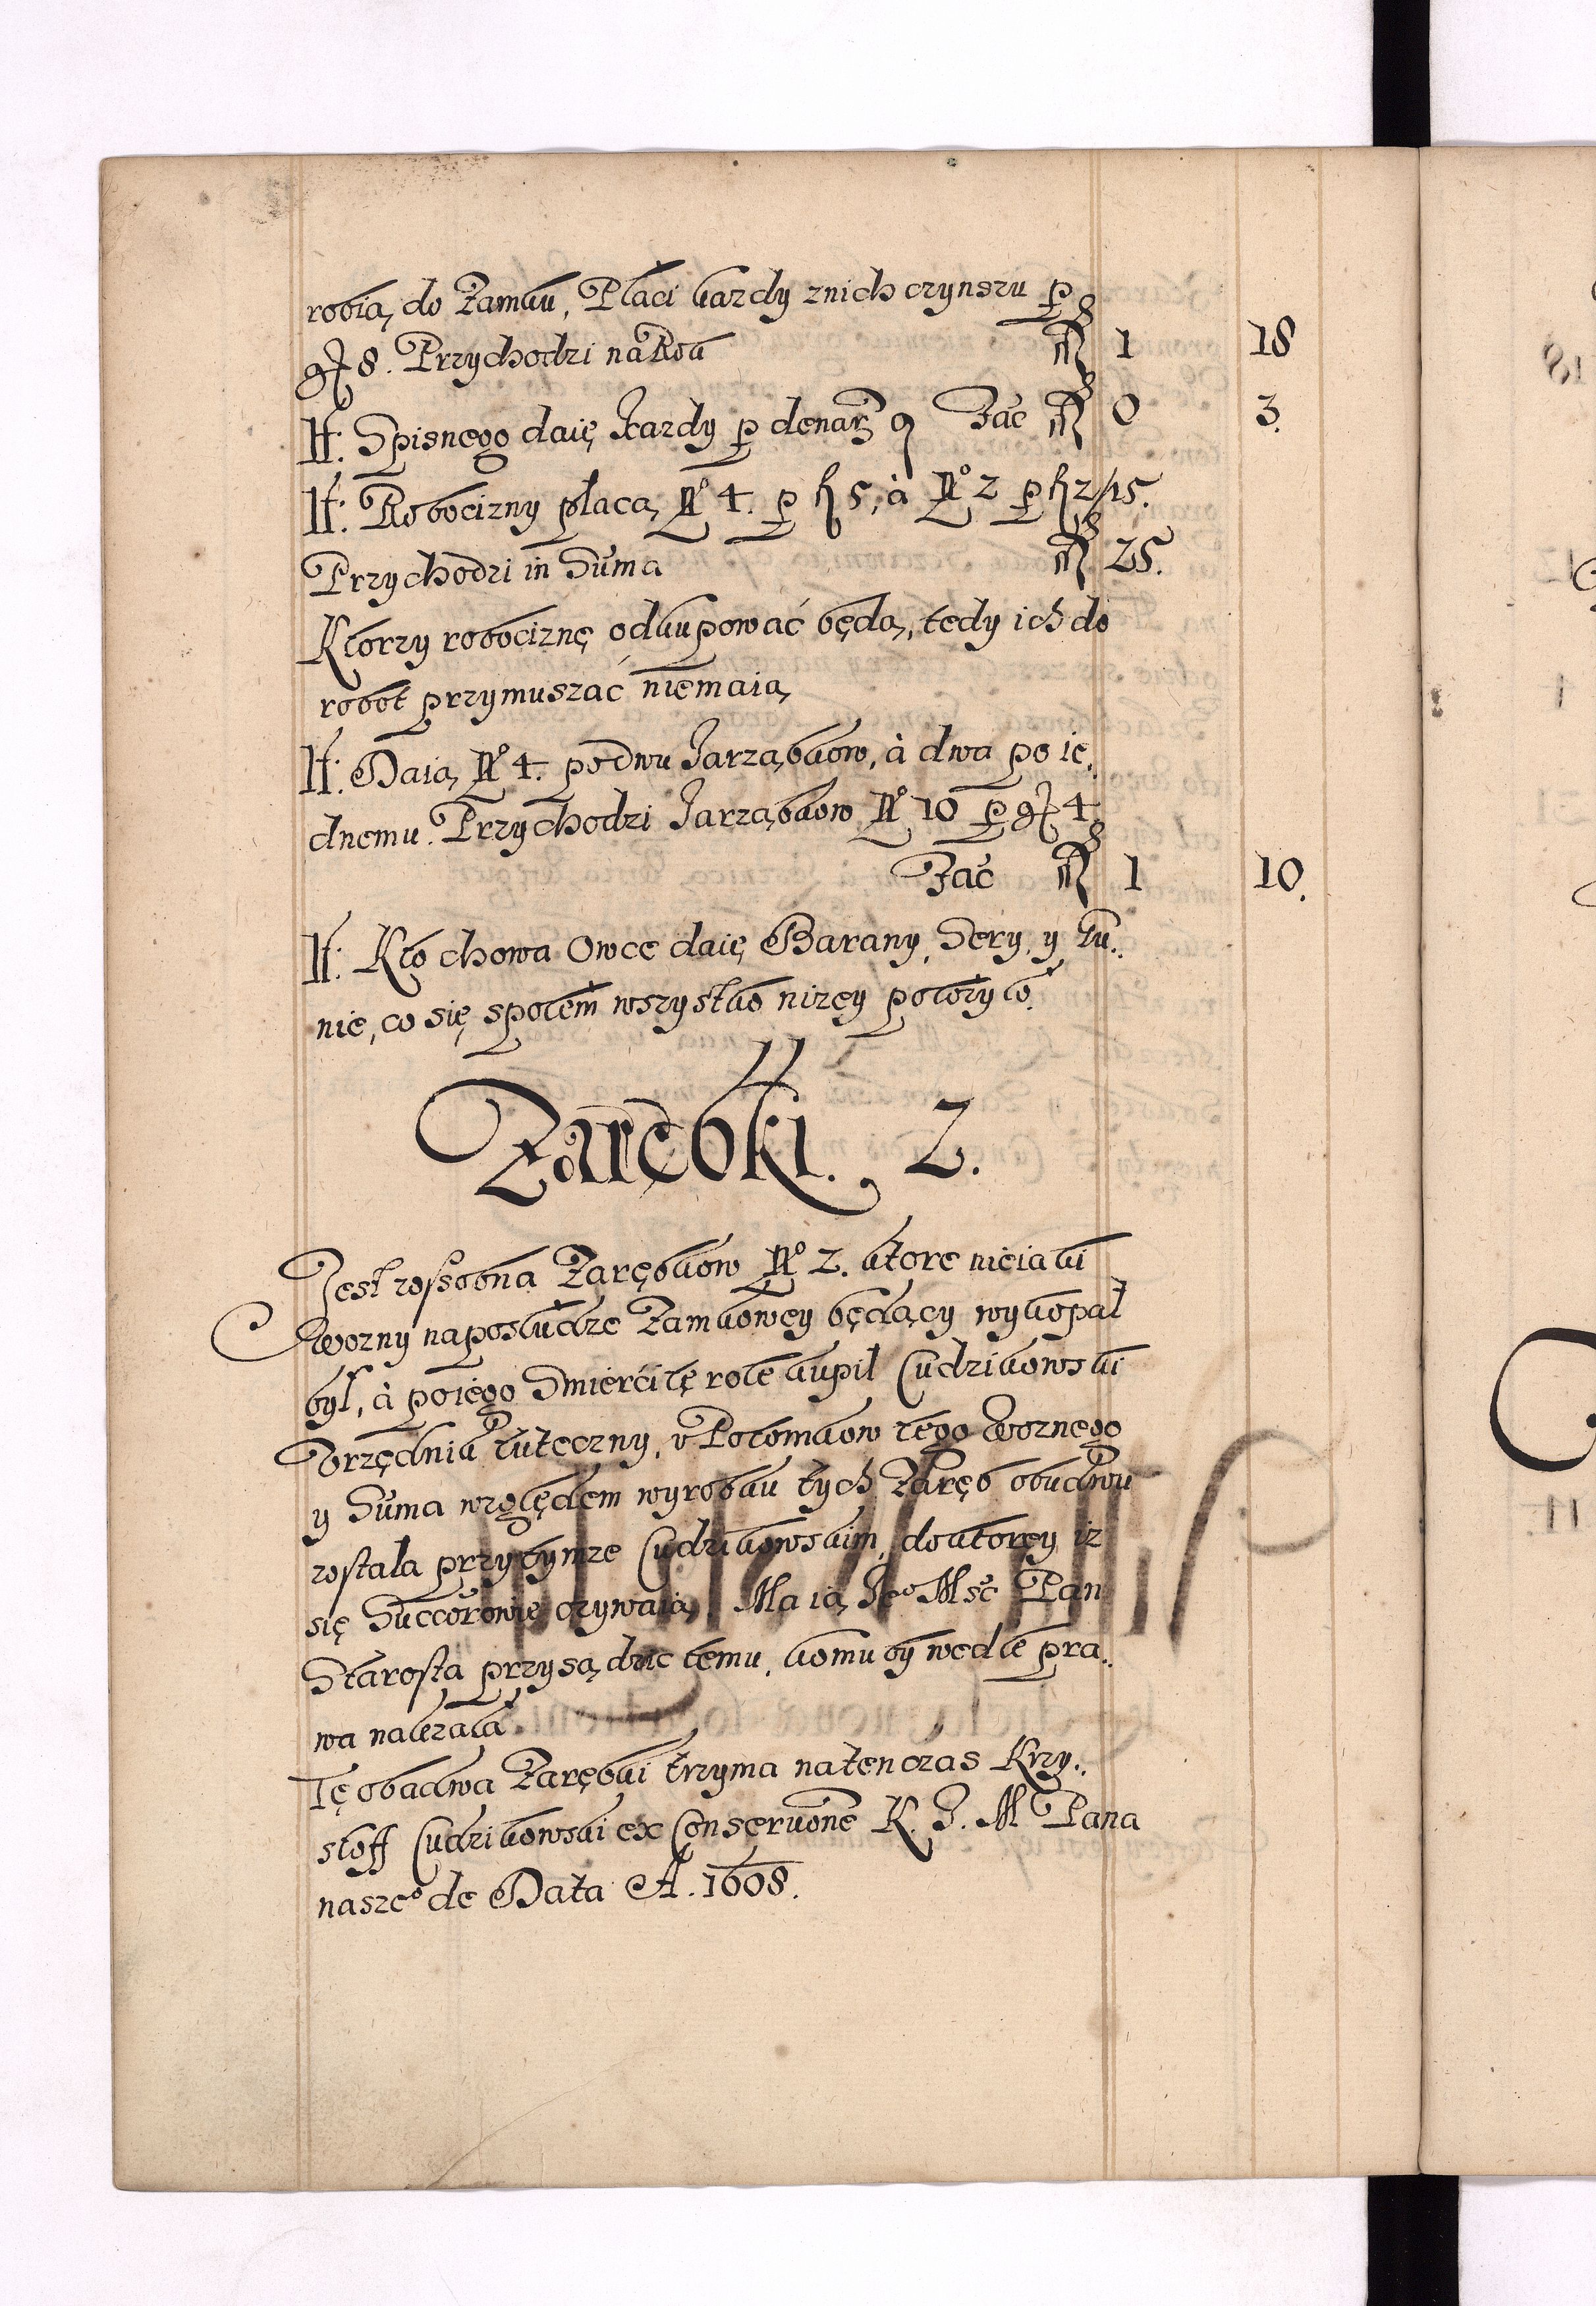 robią, do Zamku, Płaci kazdy znich czynszu p
gr 8. Przychodzi na Rok fl 1 18
It: Spisnego daię Kazdy p denar 9 Zac fl 0 3.
It: Robocizny płacą No 4. p fl 5, à No 2 p fl 2/15.
Przychodzi in Suma fl 25.
Ktorzy robociznę odkupować będą, tedy ich do
robot przymuszać niemaią,
It: Daią No 4. podwu Jarząbkow, à dwa po ie„
dnemu. Przychodzi Jarząbkow No 10 p gr 4
Zac fl 1 10.
It: Kto chowa Owce daię Barany, Sery, y Ku„
nie, co się społem wszystko nizey połozyło.
Zarębki. 2.
Jest zosobna Zarębkow No 2. ktore nieiaki
Wozny naposłudze Zamkowey będący wykopał
był, à poiego Smierći tę rolę kupił Cudzikowski
Vrzędnik tuteczny, v Potomkow tego Woznego
y Suma względem wyrobku tych Zaręb obudwu
zostala przytymze Cudzikowskim, doktorey iz
się Succorowie ozywaią, Ma ią Jeo Mśc Pan
Starosta przysądzic temu, komu by wedle pra„
wa nalezała.
Tę obadwa Zarębki trzyma natenczas Krzy„
stoff Cudzikowski ex Conseruone K. J. M Pana
naszeo de Data A. 1608.